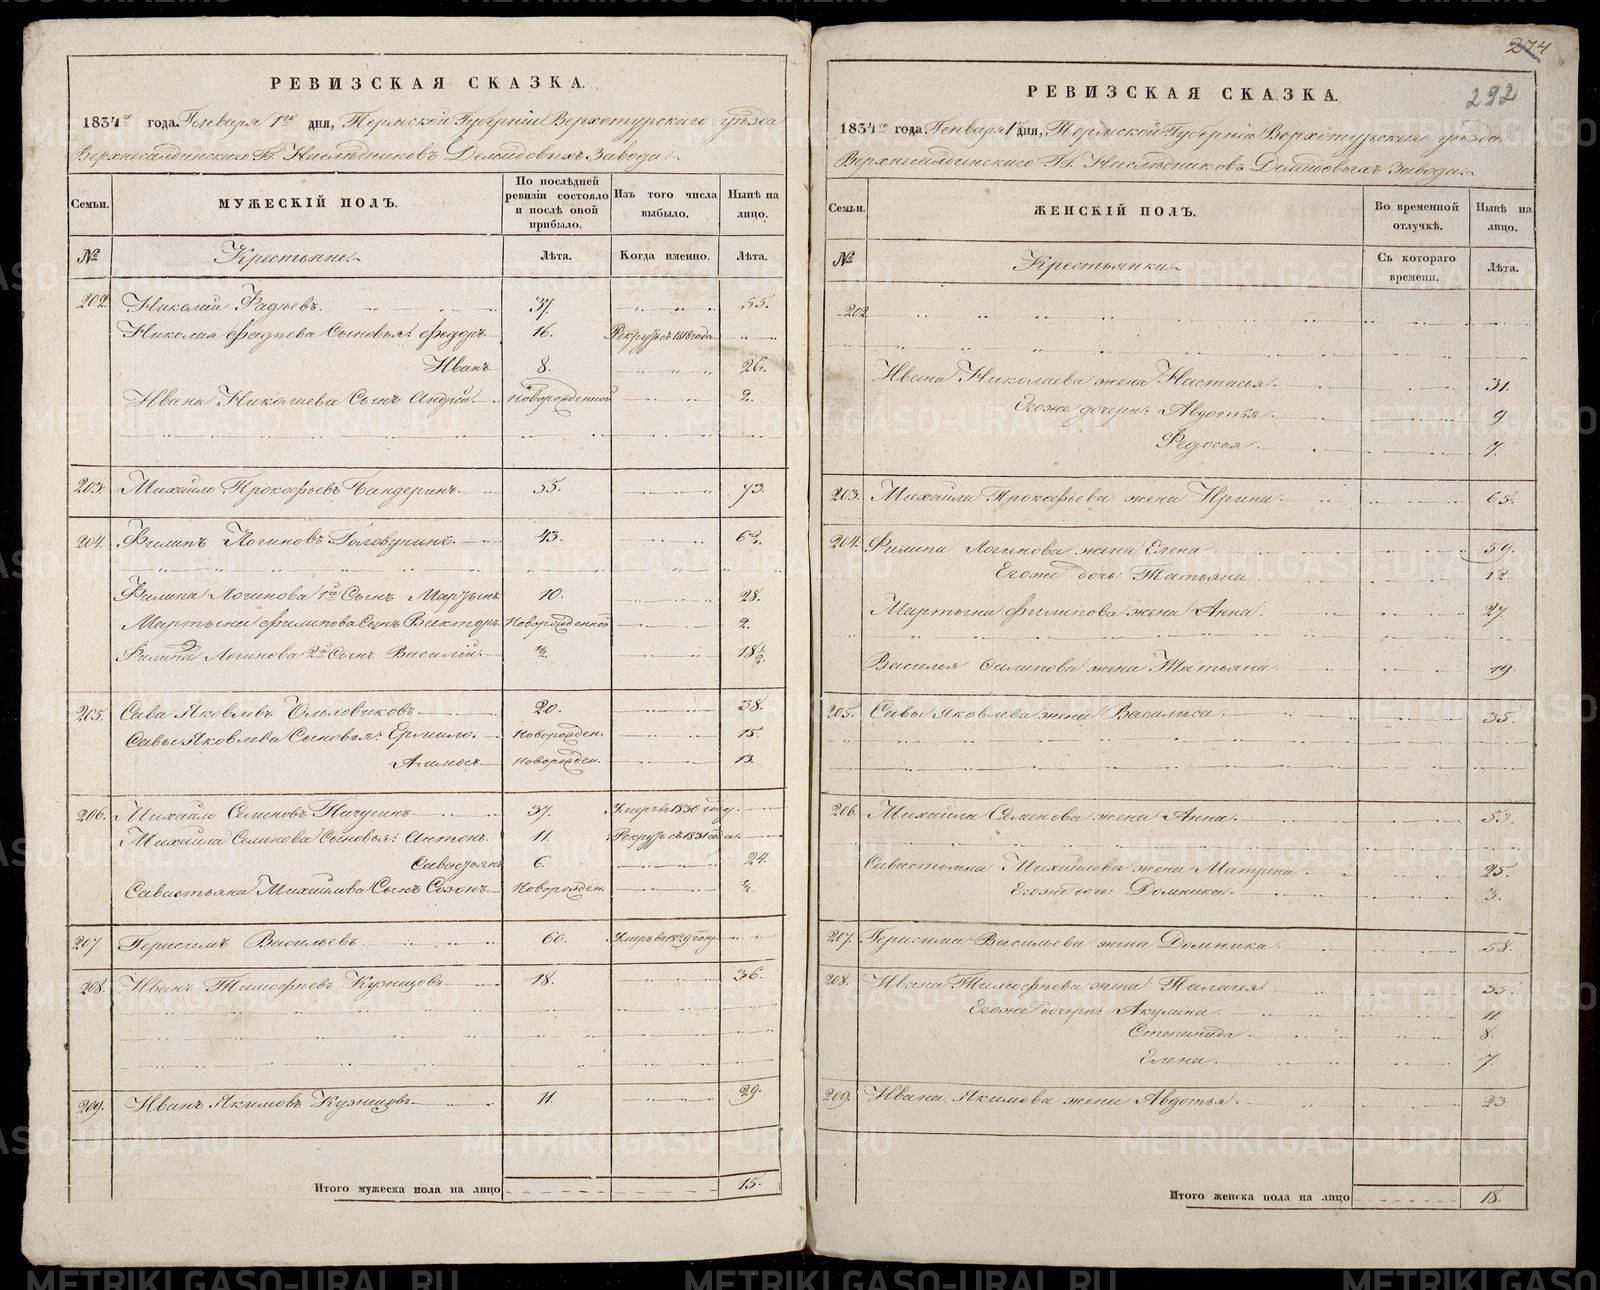 РЕВИЗСКАЯ СКАЗКА.
1834го года Генваря 1го дня, Пермской Губерніи Верхотурскаго уѣзда
Верхнесалдинскаго Гг. Наслѣдниковъ Демидовыхъ Завода
Семьи. МУЖЕСКІЙ ПОЛЪ. По послѣдней ревизіи состояло и послѣ оной прибыло. Изъ того числа выбыло. Нынѣ на лицо.
№ Крестьяне Лѣта. Когда именно. Лѣта.
202. Николай Фадѣевъ. 37. 55.
Николая Фадѣева Сыновья: Федоръ 16. Рекрутъ съ 1818 года
Иванъ 8. 26.
Ивана Николаева Сынъ Андрей Новорожденной 2.
203. Михайло Прокофьевъ 55. 73.
204. Филипъ Логиновъ Головунинъ 43. 62.
Филипа Логинова 1й Сынъ Мартынъ 10. 28.
Мартына Филипова Сынъ Викторъ Новорожденной 2.
Филипа Логинова 2й Сынъ Василій ½. 18½.
205. Сава Яковлевъ Ольховиковъ 20. 38.
Савы Яковлева Сыновья: Ермило Новорожден. 15.
Новорожден. 13.
206. Михайло Семеновъ Пичугинъ 37. Умеръ въ 1830 году
Михайла Семенова Сыновья: Антонъ 11. Рекрутъ съ 1831 года
Савастьянъ 6. 24.
Савастьяна Михайлова Сынъ Созонъ Новорожден. ½.
207. Герасимъ Васильевъ 60. Умеръ въ 1829 году
208. Иванъ Тимофѣевъ Кузнецовъ 18. 36.
209. Иванъ Якимовъ Кузнецовъ 11. 29.
Итого мужеска пола на лицо 15.
274
292
РЕВИЗСКАЯ СКАЗКА.
1834го года Генваря 1го дня, Пермской Губерніи Верхотурскаго уѣзда
Верхнесалдинскаго Гг. Наслѣдниковъ Демидовыхъ Завода
Семьи. ЖЕНСКІЙ ПОЛЪ. Во временной отлучкѣ. Нынѣ на лицо.
№ Крестьянки Съ котораго времени. Лѣта.
202
Ивана Николаева жена Настасья 31.
Егоже дочери: Авдотья 9
Федосья 7.
203. Михайла Прокофьева жена Ирина 65.
204. Филипа Логинова жена Елена 59.
Егоже дочь: Татьяна 12
Мартына Филипова жена Анна 27
Василья Филипова жена Татьяна 19.
205. Савы Яковлева жена Василиса 35.
206. Михайла Семенова жена Анна 53.
Савастьяна Михайлова жена Матрена 25.
Егоже дочь: Домника 3.
207. Герасима Васильева жена Домника 58.
208. Ивана Тимофѣева жена Палагея 35.
Егоже дочери: Акулина 11
Степанида 8.
Елена 7
209. Ивана Якимова жена Авдотья 23.
Итого женска пола на лицо 18.
METRIKI.GASO-URAL.RU